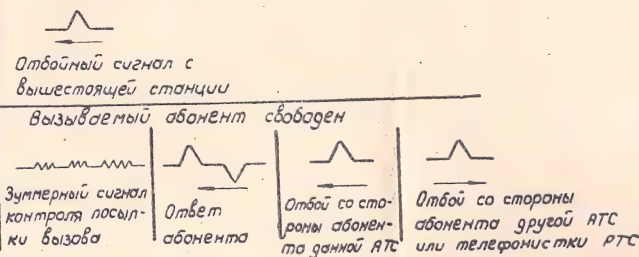 Отбойный сигнал с
вышестоящей станции
Вызываемый абонент свободен
Зуммерный сигнал
контроля посыл-
ки вызова
Ответ
абонента
Отбой со сто-
роны абонен-
та данной АТС
Отбой со стороны
абонента другой АТС
или телефонистки РТС